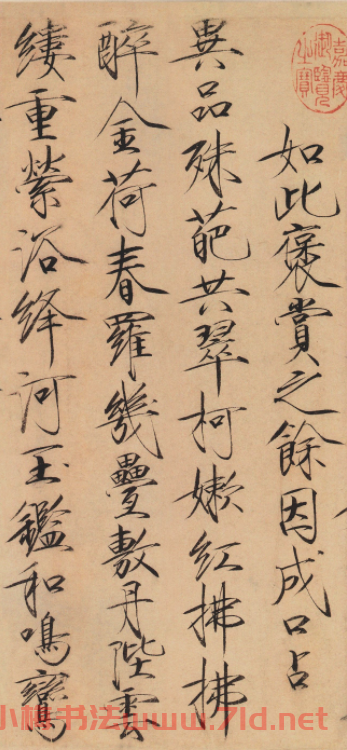 嘉慶御覽之寶
如此褒賞之餘因成口占
異品殊葩共翠柯嫩紅拂拂
醉金荷春羅幾疊敷丹陛雲
縷重縈浴絳河玉鑑和鳴鸞
小楷书法www.7ld.net